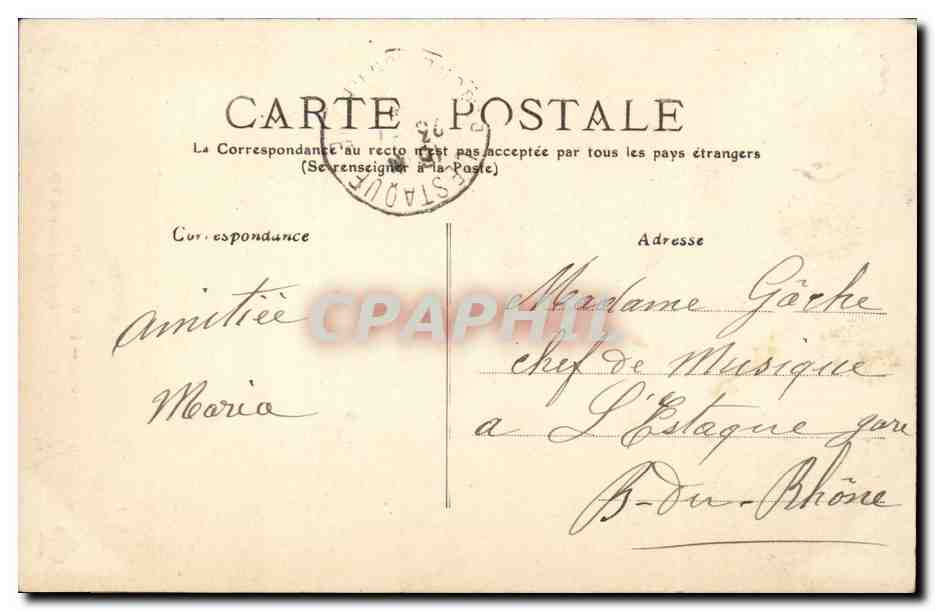 CARTE POSTALE
La Correspondance au recto n'est pas acceptée par tous les pays étrangers
(Se renseigner à la Poste)
L'ESTAQUE
Correspondance
Adresse
amitiée
Maria
Madame Gâche
chef de Musique
a L'Estaque gare
B-du-Rhône
CPAPHIL